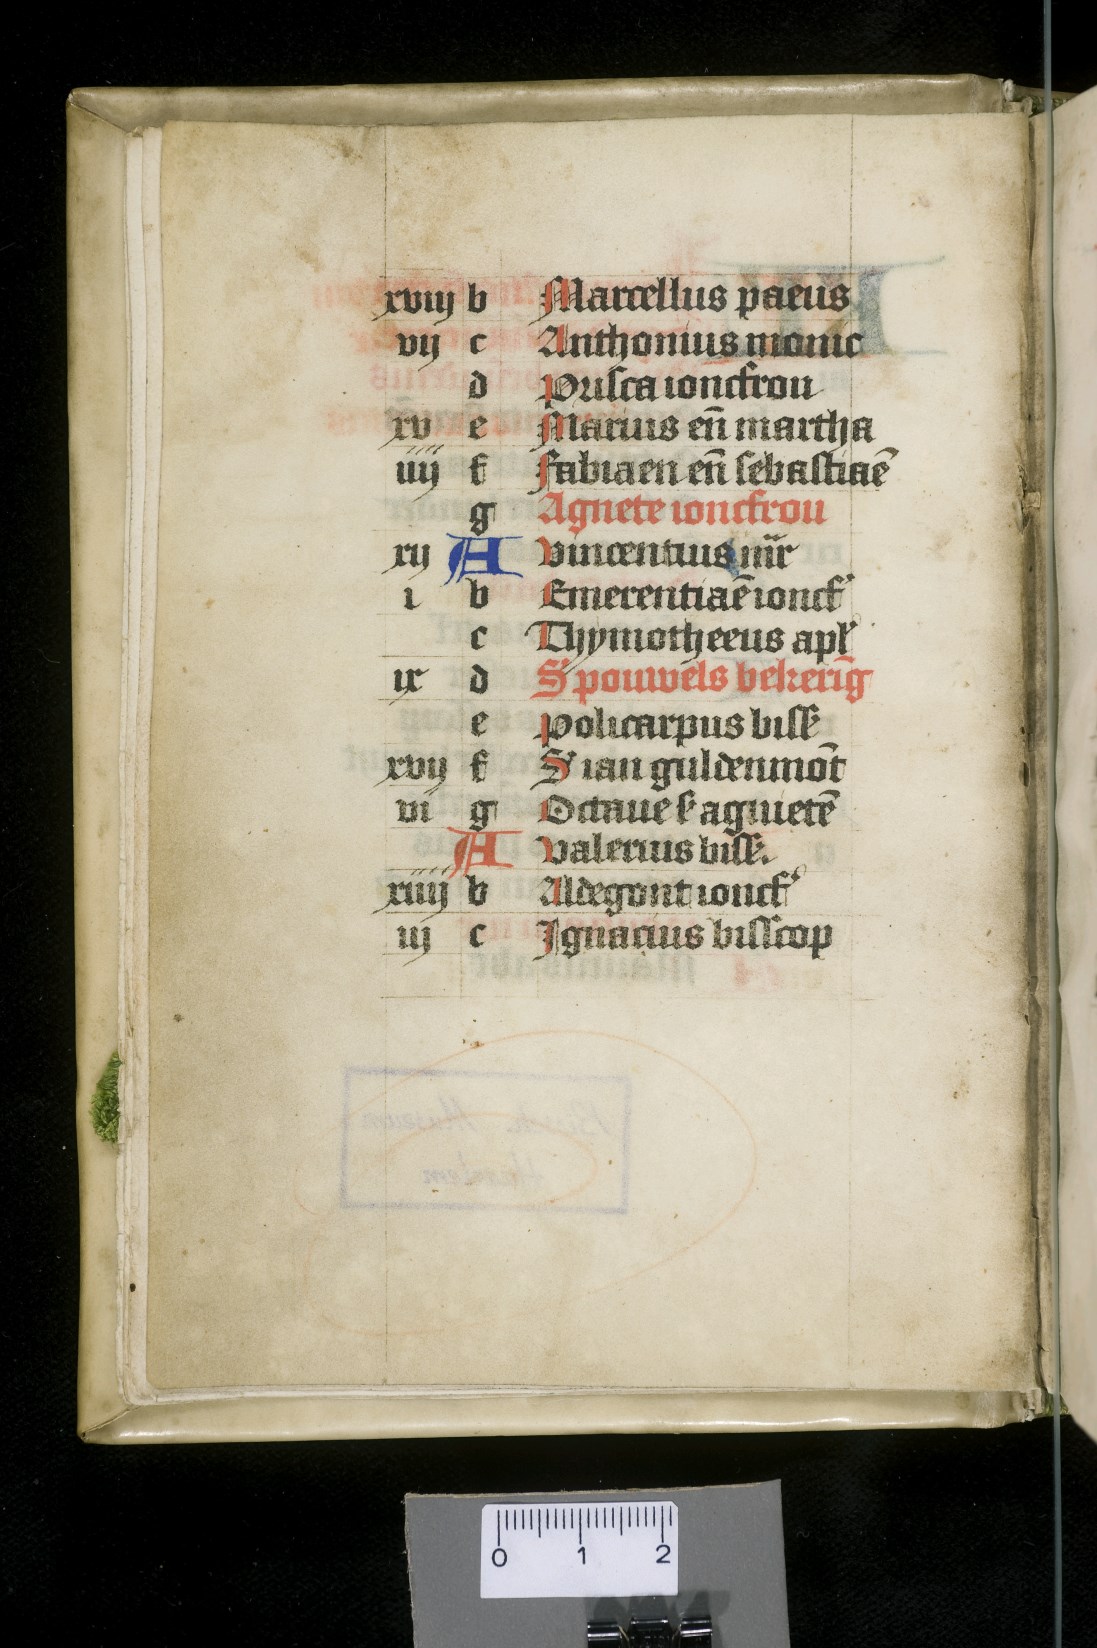 xviij b Marcellus paeus
vij c Anthonius monic
d Prisca ioncfrou
xv e Marius en̄ martha
iiij f Fabiaen en̄ sebastiaē
g Agnete ioncfrou
xij A Vincentius mr̄
i b Emerentiaē ioncf'
c Thymotheeus apl'
ix d S' pouwels bekerīg
e Policarpus biss'
xvij f S' ian guldenmōt
vi g Octaue s' agnietē
A Valerius biss'.
xiiij b Aldegont ioncf'
iij c Ignacius bisscop
0 1 2